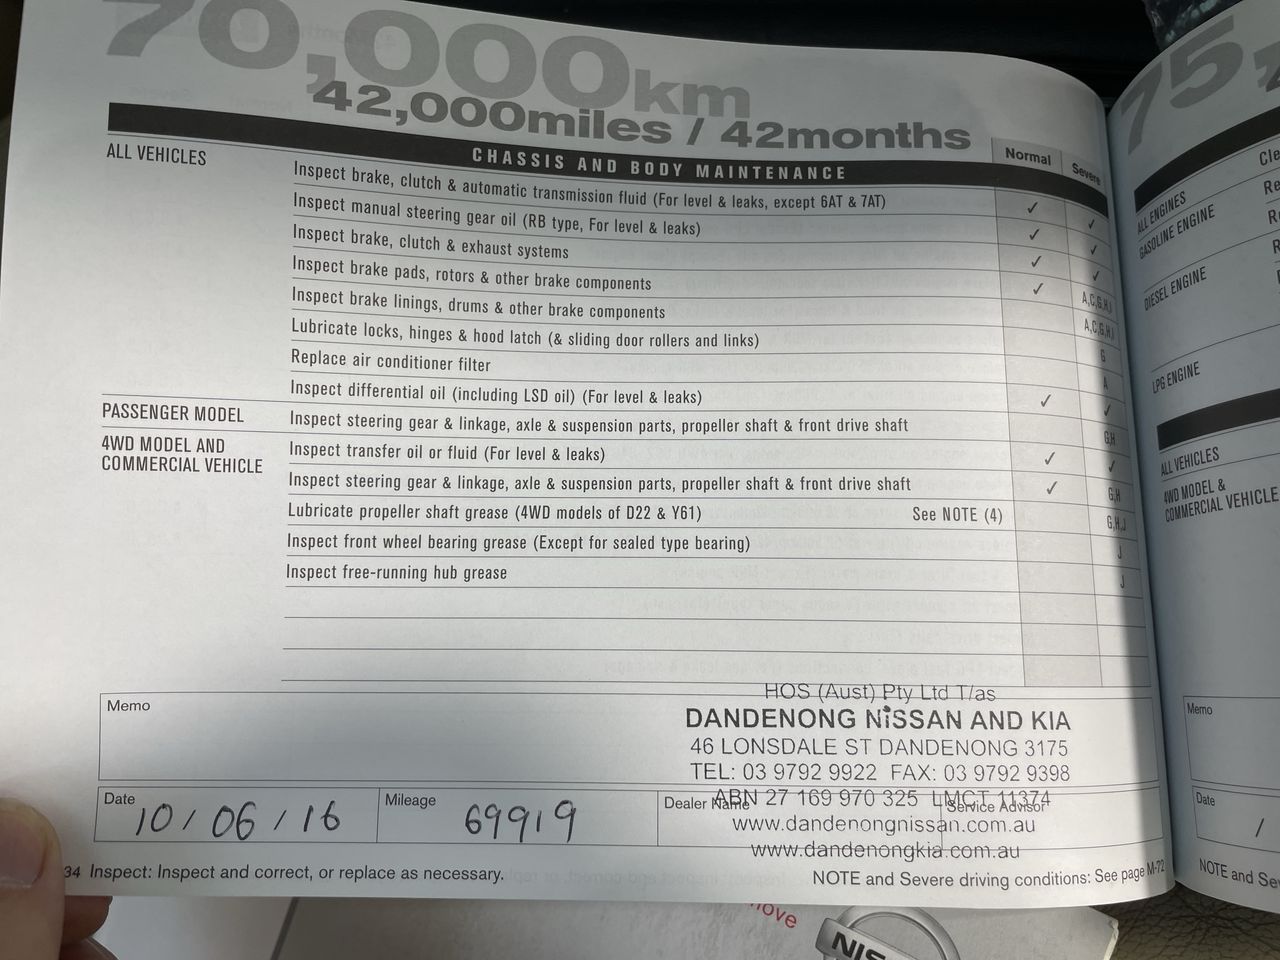 70,000km
42,000miles / 42months
CHASSIS AND BODY MAINTENANCE Normal Severe
ALL VEHICLES
Inspect brake, clutch & automatic transmission fluid (For level & leaks, except 6AT & 7AT) ✓ ✓
Inspect manual steering gear oil (RB type, For level & leaks) ✓ ✓
Inspect brake, clutch & exhaust systems ✓ ✓
Inspect brake pads, rotors & other brake components ✓ A,C,G,H,I
Inspect brake linings, drums & other brake components A,C,G,H,I
Lubricate locks, hinges & hood latch (& sliding door rollers and links) G
Replace air conditioner filter A
Inspect differential oil (including LSD oil) (For level & leaks) ✓ ✓
PASSENGER MODEL
Inspect steering gear & linkage, axle & suspension parts, propeller shaft & front drive shaft G,H
4WD MODEL AND
COMMERCIAL VEHICLE
Inspect transfer oil or fluid (For level & leaks) ✓ ✓
Inspect steering gear & linkage, axle & suspension parts, propeller shaft & front drive shaft ✓ G,H
Lubricate propeller shaft grease (4WD models of D22 & Y61) See NOTE (4) G,H,J
Inspect front wheel bearing grease (Except for sealed type bearing) J
Inspect free-running hub grease J
Memo
HOS (Aust) Pty Ltd T/as
DANDENONG NiSSAN AND KIA
46 LONSDALE ST DANDENONG 3175
TEL: 03 9792 9922 FAX: 03 9792 9398
ABN 27 169 970 325 LMCT 11374
www.dandenongnissan.com.au
www.dandenongkia.com.au
Date 10/06/16
Mileage 69919
Dealer Name
Service Advisor
34 Inspect: Inspect and correct, or replace as necessary.
NOTE and Severe driving conditions: See page M-72
75,
ALL ENGINES
GASOLINE ENGINE
DIESEL ENGINE
LPG ENGINE
ALL VEHICLES
4WD MODEL &
COMMERCIAL VEHICLE
Memo
Date
/
NOTE and Se
NIS